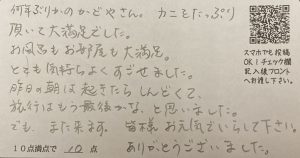 何年ぶりかのかどやさん。カニをたっぷり
頂いて大満足でした。
お風呂もお部屋も大満足。
とても気持ちよくすごせました。
昨日の朝は起きたらしんどくて、
旅行はもう最後かな、と思いました。
でも、また来ます。皆様お元気でいらして下さい。
ありがとうございました。
10点満点で 10 点
スマホでも投稿
OK！チェック欄
記入後フロント
へお渡し下さい。